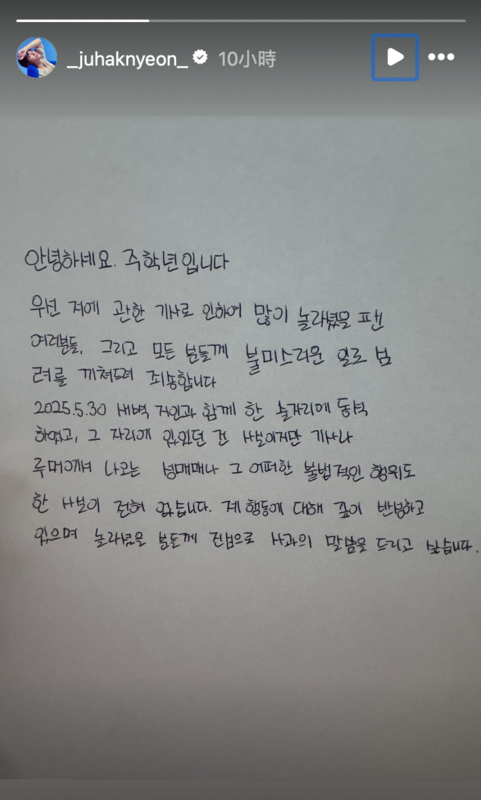 _juhaknyeon_ 10小時
안녕하세요. 주학년입니다
우선 저에 관한 기사로 인하여 많이 놀라셨을 팬
여러분들, 그리고 모든 분들께 불미스러운 일로 심
려를 끼쳐드려 죄송합니다
2025.5.30 새벽 지인과 함께 한 술자리에 동석
하였고, 그 자리에 있었던 건 사실이지만 기사나
루머에서 나오는 성매매나 그 어떠한 불법적인 행위도
한 사실이 전혀 없습니다. 제 행동에 대해 깊이 반성하고
있으며 놀라셨을 분들께 진심으로 사과의 말씀을 드리고 싶습니다.